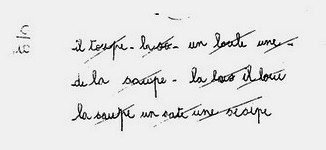 5/10
il toupe - la so - un loute une -
de la saupe - la lois il loui
la saupe un sate une sesipe